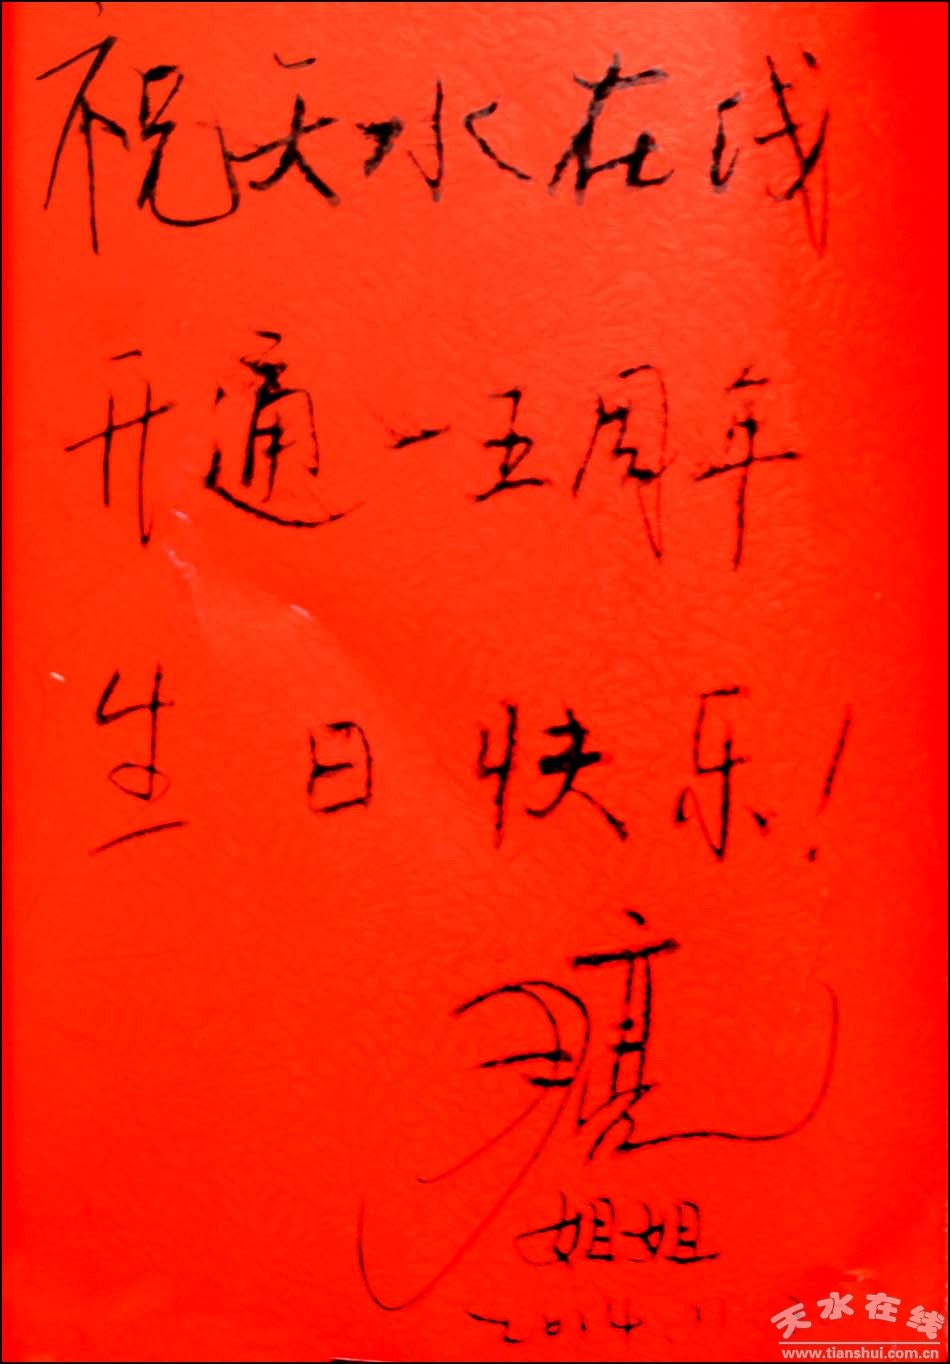 祝天水在线
开通一五周年
生日快乐！
月亮
姐姐
2014.11
天水在线
www.tianshui.com.cn